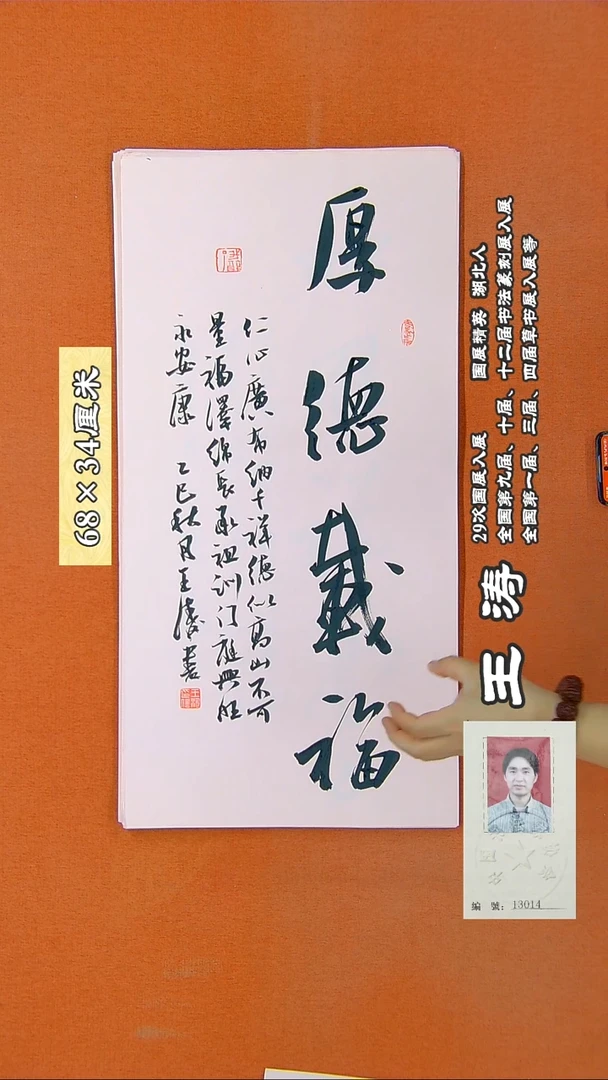 厚德載福
仁心廣布納千祥德似高山不可
量福澤綿長承祖訓門庭興旺
永安康 乙巳秋月王濤書
68×34厘米
王涛
29次国展入展 国展精英 湖北人
全国第九届、十届、十二届书法篆刻展入展
全国第一届、三届、四届草书展入展等
編 號: 13014